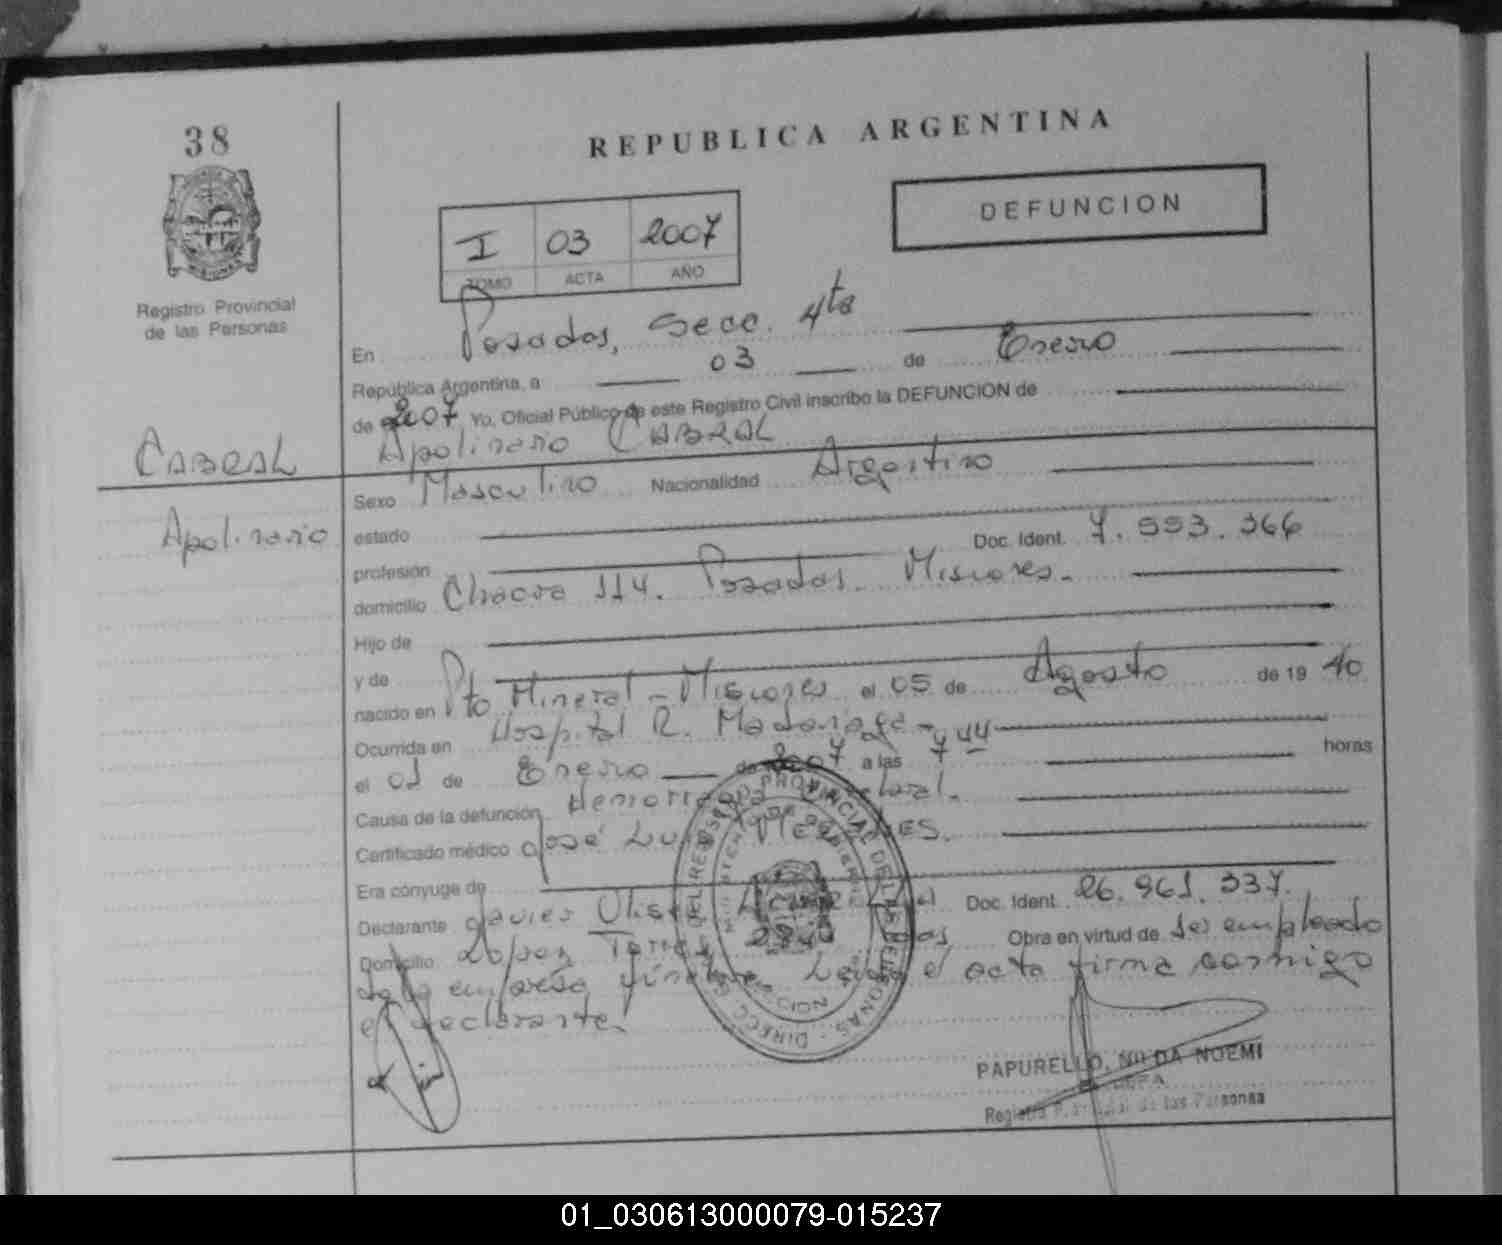 38
REPUBLICA ARGENTINA
DEFUNCION
I 03 2007
TOMO ACTA AÑO
Registro Provincial
de las Personas
En Posadas, Secc. 4ta
República Argentina, a 03 de Enero
de 2007 Yo, Oficial Público de este Registro Civil inscribo la DEFUNCION de
CABRAL Apolinario CABRAL
Sexo Masculino Nacionalidad Argentino
Apolinario
estado
Doc. Ident. 7.553.366
profesión
domicilio Chacra 114. Posadas. Misiones.
Hijo de
y de
nacido en Pto Mineral - Misiones el 05 de Agosto de 19 40
Ocurrida en Hospital R. Madariaga -
el 01 de Enero de 2007 a las 7 44 horas
Causa de la defunción Hemorragia
Certificado médico José Luis
Era cónyuge de
Declarante Javier Doc. Ident. 26.961.337.
Domicilio Lopez Torres Obra en virtud de ser empleado
de la empresa fúnebre Leida el acta firma conmigo
el declarante.
DIRECC. GRAL. DEL REGISTRO PROVINCIAL DE LAS PERSONAS
PAPURELLO, NILDA NOEMI
JEFA
Registro Provincial de las Personas
01_030613000079-015237